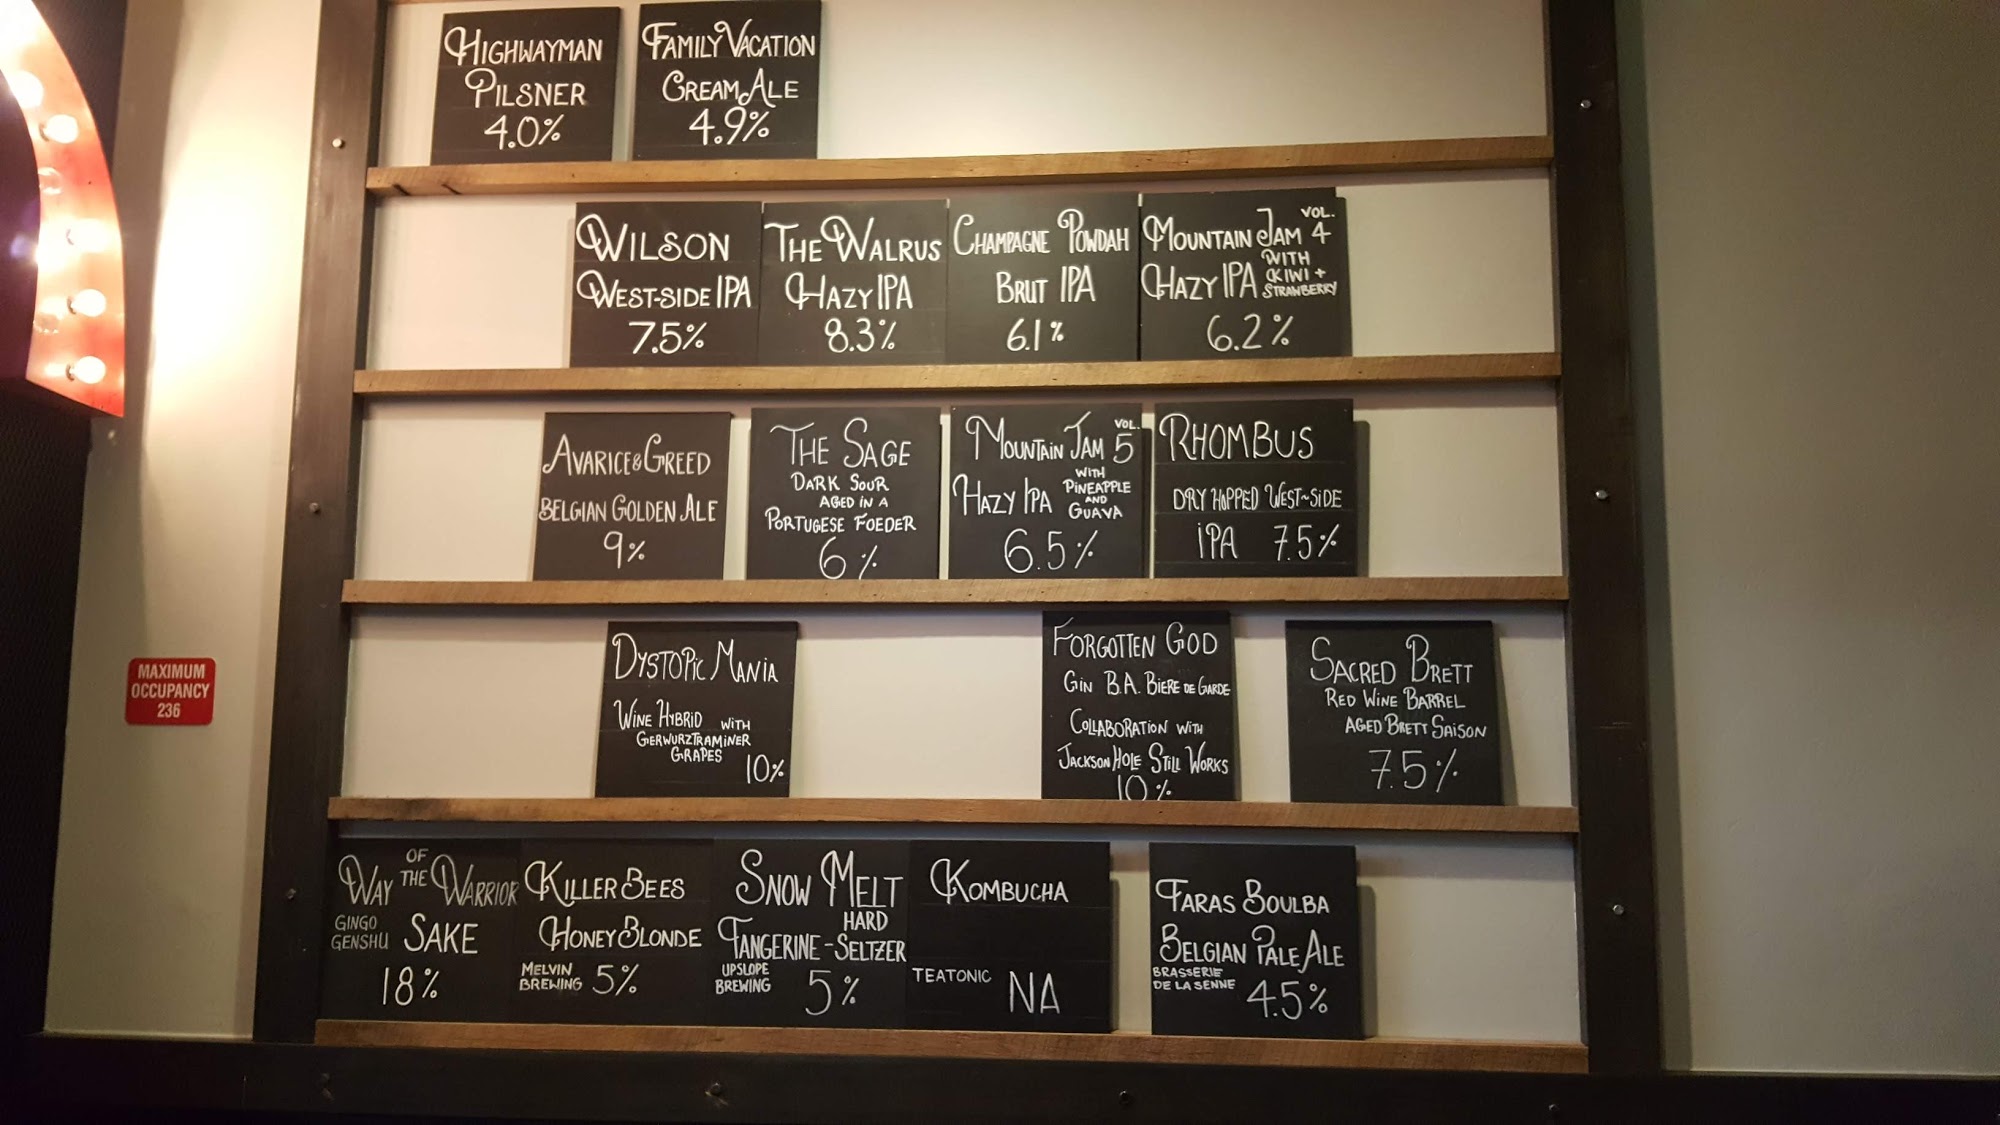 HIGHWAYMAN
PILSNER
4.0%
FAMILY VACATION
CREAM ALE
4.9%
WILSON
WEST-SIDE IPA
7.5%
THE WALRUS
HAZY IPA
8.3%
CHAMPAGNE POWDAH
BRUT IPA
6.1%
MOUNTAIN JAM VOL. 4
HAZY IPA WITH KIWI + STRAWBERRY
6.2%
AVARICE & GREED
BELGIAN GOLDEN ALE
9%
THE SAGE
DARK SOUR
AGED IN A
PORTUGESE FOEDER
6%
MOUNTAIN JAM VOL. 5
HAZY IPA WITH PINEAPPLE AND GUAVA
6.5%
RHOMBUS
DRY HOPPED WEST~SIDE
IPA 7.5%
DYSTOPIC MANIA
WINE HYBRID WITH
GERWURZTRAMINER
GRAPES
10%
FORGOTTEN GOD
GIN B.A. BIERE DE GARDE
COLLABORATION WITH
JACKSON HOLE STILL WORKS
10%
SACRED BRETT
RED WINE BARREL
AGED BRETT SAISON
7.5%
MAXIMUM
OCCUPANCY
236
WAY OF THE WARRIOR
GINGO GENSHU SAKE
18%
KILLER BEES
HONEY BLONDE
MELVIN BREWING 5%
SNOW MELT
HARD
TANGERINE-SELTZER
UPSLOPE BREWING 5%
KOMBUCHA
TEATONIC NA
TARAS BOULBA
BELGIAN PALE ALE
BRASSERIE
DE LA SENNE 4.5%